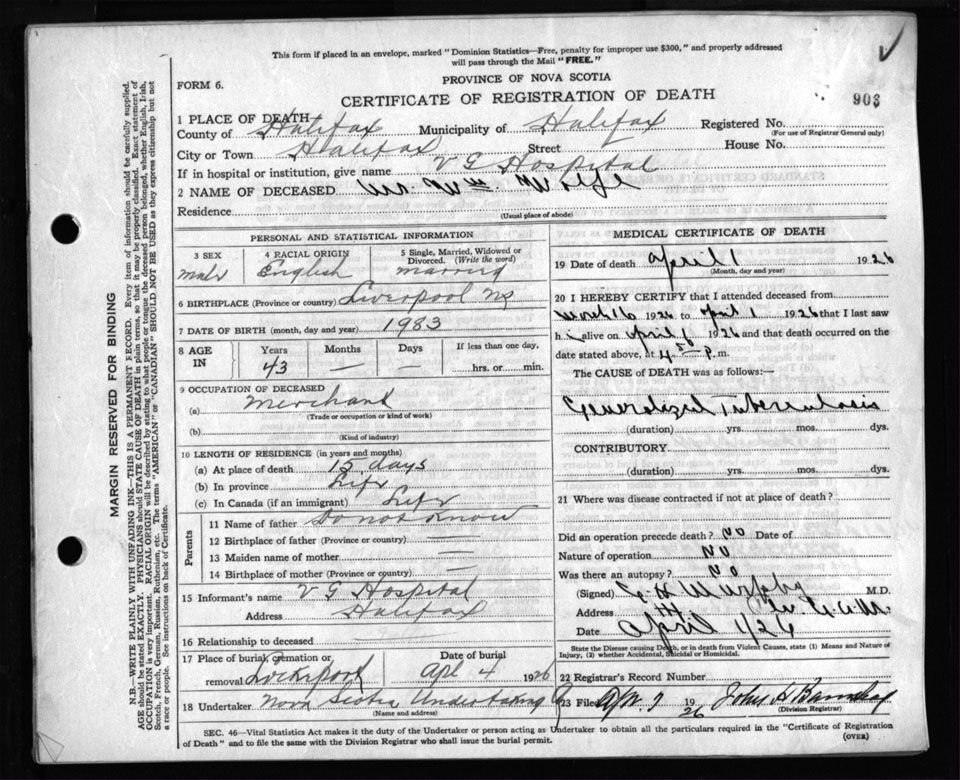 This form if placed in an envelope, marked "Dominion Statistics—Free, penalty for improper use $300," and properly addressed
will pass through the Mail "FREE."
FORM 6.
PROVINCE OF NOVA SCOTIA
903
CERTIFICATE OF REGISTRATION OF DEATH
1 PLACE OF DEATH
County of Halifax Municipality of Halifax Registered No.
(For use of Registrar General only)
City or Town Halifax Street House No.
If in hospital or institution, give name V G Hospital
2 NAME OF DECEASED Mr. Wm.
Residence
(Usual place of abode)
PERSONAL AND STATISTICAL INFORMATION
3 SEX male
4 RACIAL ORIGIN English
5 Single, Married, Widowed or Divorced. (Write the word) married
6 BIRTHPLACE (Province or country) Liverpool NS
7 DATE OF BIRTH (month, day and year) 1983
8 AGE IN Years 43 Months — Days — If less than one day, hrs. or min.
9 OCCUPATION OF DECEASED
(a) Merchant
(Trade or occupation or kind of work)
(b)
(Kind of industry)
10 LENGTH OF RESIDENCE (in years and months)
(a) At place of death 15 days
(b) In province Life
(c) In Canada (if an immigrant) Life
Parents
11 Name of father Do not Know
12 Birthplace of father (Province or country) —
13 Maiden name of mother —
14 Birthplace of mother (Province or country) —
15 Informant's name V G Hospital
Address Halifax
16 Relationship to deceased
17 Place of burial, cremation or removal Date of burial Apl 4 1926
18 Undertaker Nova Scotia Undertaking
(Name and address)
MEDICAL CERTIFICATE OF DEATH
19 Date of death April 1 1926
(Month, day and year)
20 I HEREBY CERTIFY that I attended deceased from
March 16 1926 to April 1 1926 that I last saw
h alive on April 1 1926 and that death occurred on the
date stated above, at 4 p.m.
The CAUSE of DEATH was as follows:—
Generalized Tuberculosis
(duration) yrs. mos. dys.
CONTRIBUTORY
(duration) yrs. mos. dys.
21 Where was disease contracted if not at place of death?
Did an operation precede death? No Date of
Nature of operation No
Was there an autopsy? No
(Signed) Murphy M.D.
Address
Date April 1/26
State the Disease causing Death, or in death from Violent Causes, state (1) Means and Nature of
Injury, (2) whether Accidental, Suicidal or Homicidal.
22 Registrar's Record Number
23 Filed Apr 7 1926 John H
(Division Registrar)
SEC. 46—Vital Statistics Act makes it the duty of the Undertaker or person acting as Undertaker to obtain all the particulars required in the "Certificate of Registration
of Death" and to file the same with the Division Registrar who shall issue the burial permit.
(OVER)
MARGIN RESERVED FOR BINDING
N.B.—WRITE PLAINLY WITH UNFADING INK—THIS IS A PERMANENT RECORD. Every item of information should be carefully supplied.
AGE should be stated EXACTLY. PHYSICIANS should STATE CAUSE OF DEATH in plain terms, so that it may be properly classified. Exact statement of
OCCUPATION is very important. RACIAL ORIGIN will be described by stating to what people or tongue the deceased person belonged, whether English, Irish,
Scotch, French, German, Russian, Ruthenian, etc. The terms "AMERICAN" or "CANADIAN" SHOULD NOT BE USED as they express citizenship but not
a race or people. See instructions on back of Certificate.